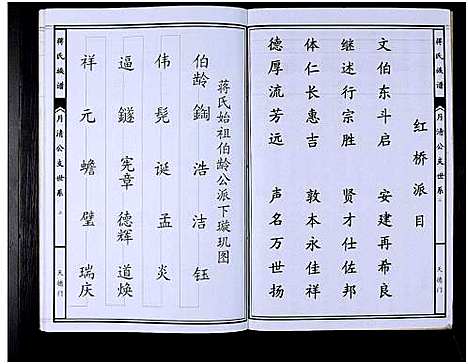 蒋氏族谱
《月清公支世系》
天德门
红桥派目
文伯东斗启 安建再希良
继述行宗胜 贤才仕佐邦
体仁长惠吉 敦本永佳祥
德厚流芳远 声名万世扬
蒋氏始祖伯龄公派下璇玑图
伯龄 鎓 浩 洁 钰
伟 髡 诞 孟 炎
逼 鐩 宪章 德辉 道焕
祥 元 蟾 璧 瑞庆
蒋氏族谱
《月清公支世系》
天德门